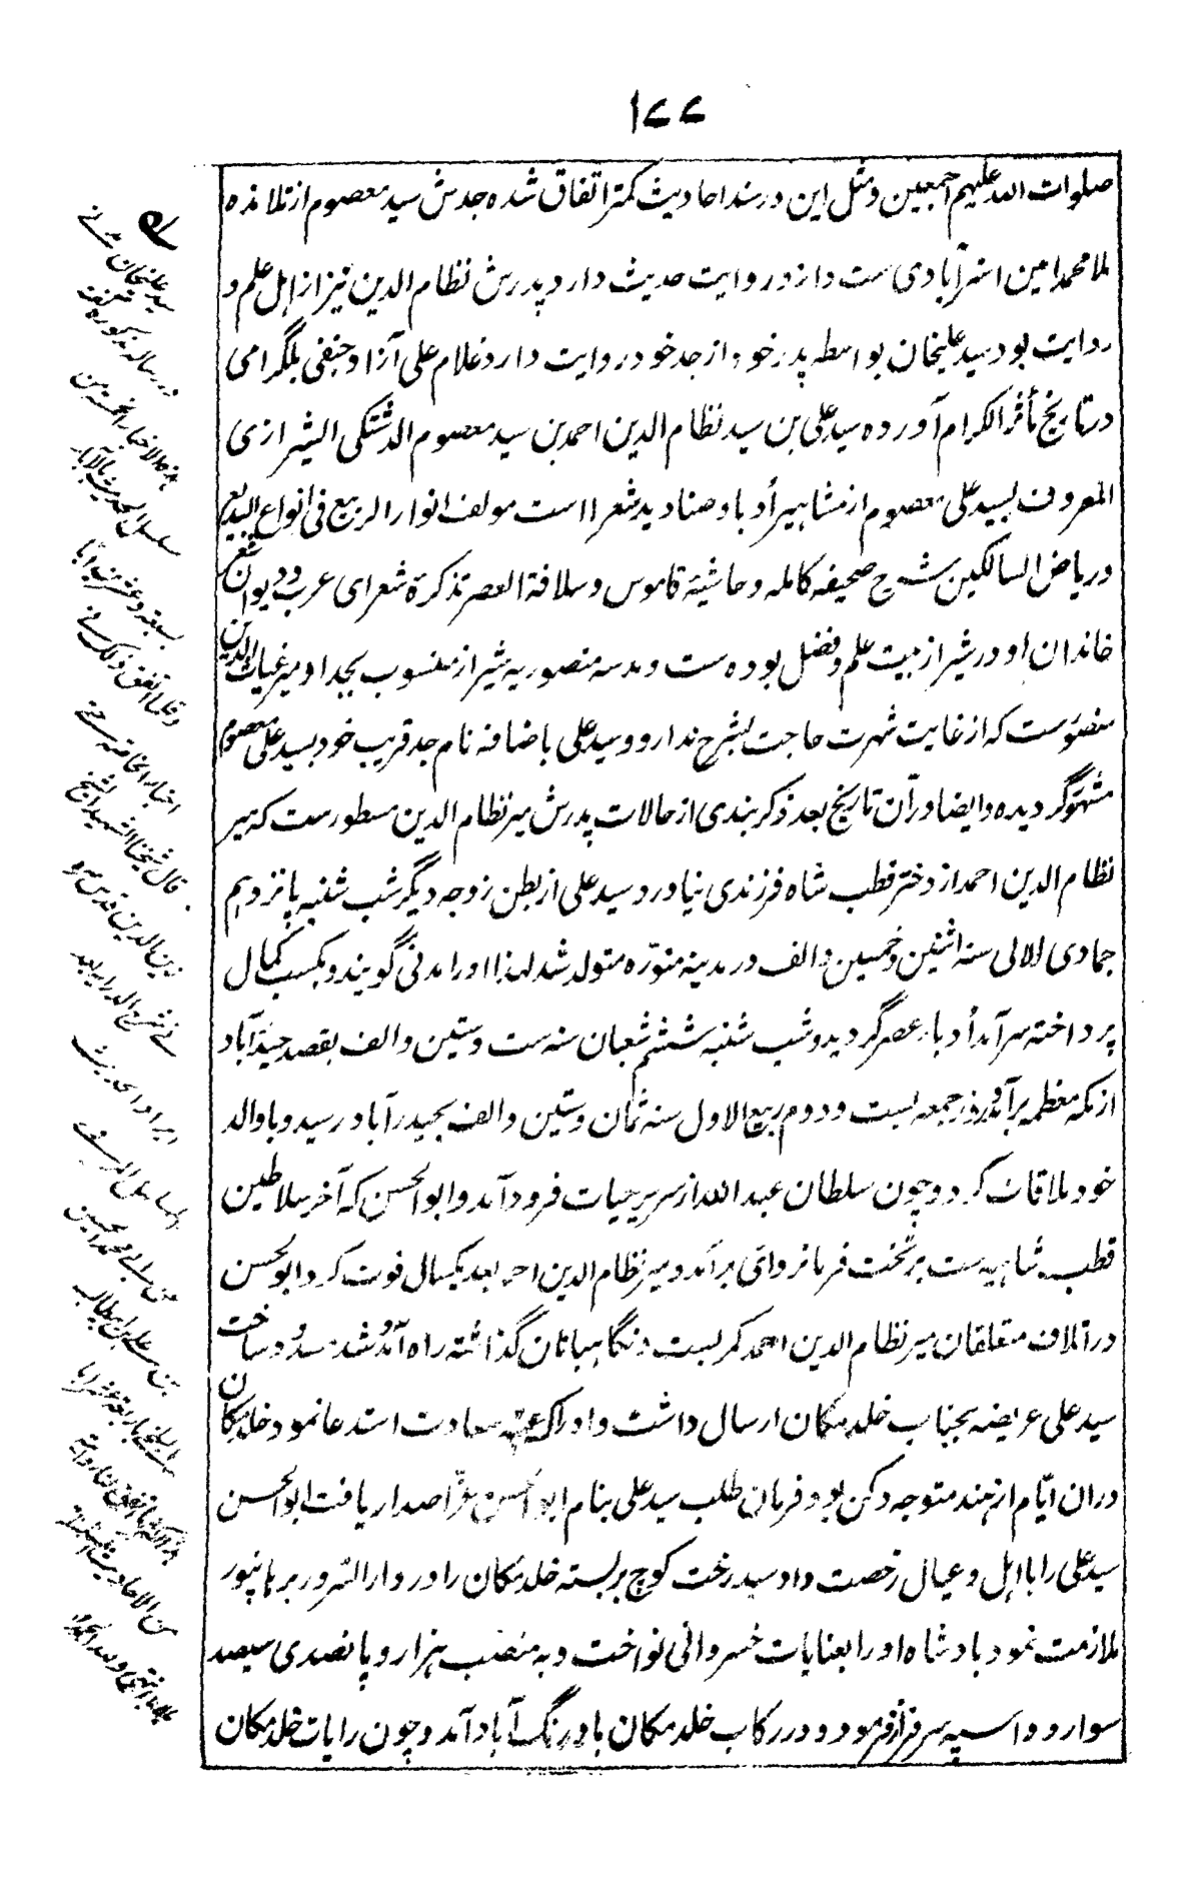 ۱۷۷
صلوات الله علیهم اجمعین و مثل این در سند احادیث کمتر اتفاق شده جدش سید معصوم از تلامذه
ملا محمد امین استرآبادی ست و ازو روایت حدیث دارد پدرش نظام الدین نیز از اهل علم و
روایت بود سید علیخان بواسطه پدر خود از جد خود روایت دارد غلام علی آزاد حنفی بلگرامی
در تاریخ مآثر الکرام آورده سید علی بن سید نظام الدین احمد بن سید معصوم الدشتکی الشیرازی
المعروف بسید علی معصوم از مشاهیر أدبا و صنادید شعرا است مولف انوار الربیع فی انواع البدیع
و ریاض السالکین شرح صحیفه کامله و حاشیۀ قاموس و سلافة العصر تذکرۀ شعرای عرب و دیوان شعر
خاندان او در شیراز بیت علم و فضل بوده ست و مدسه منصوریه شیراز منسوب بجد او میر غیاث الدین
منصورست که از غایت شهرت حاجت بشرح ندارد و سید علی باضافه نام جد قریب خود بسید علی معصوم
مشتهر گردیده و ایضا در آن تاریخ بعد ذکر بندی از حالات پدرش میر نظام الدین مسطورست که میر
نظام الدین احمد از دختر قطب شاه فرزندی نیاورد و سید علی از بطن زوجه دیگر شب شنبه پانزدهم
جمادی الاولی سنه اثنین و خمسین و الف در مدینه منوّره متولد شد لهذا او را مدنی گویند و بکسب کمال
پرداخته سرآمد أدباء عصر گردید و شب شنبه ششم شعبان سنه ست و ستین و الف بقصد حیدرآباد
از مکه معظمه برآمد و روز جمعه بست و دوم ربیع الاول سنه ثمان و ستین و الف بحیدرآباد رسید و با والد
خود ملاقات کرد و چون سلطان عبد الله از سریر حیات فرود آمد و ابو الحسن که آخر سلاطین
قطب شاهیه ست بر تخت فرمانروائی برآمد و میر نظام الدین احمد بعد یکسال فوت کرد ابو الحسن
در اتلاف متعلقان میر نظام الدین احمد کمر بست و نگاهبانان گذاشته راه آمد و شد مسدود ساخت
سید علی عریضه بجناب خلد مکان ارسال داشت و ادراک عتبه سعادت استدعا نمود خلد مکان
دران ایّام از هند متوجه دکن بود فرمان طلب سید علی بنام ابو الحسن عزّ اصدار یافت ابو الحسن
سید علی را با اهل و عیال رخصت داد سید رخت کوچ بر بسته خلد مکان را در دار السرور برهانپور
ملازمت نمود بادشاه او را بعنایات خسروانی نواخت و به منصب هزار و پانصدی سیصد
سوار دو اسپه سرفراز فرمود و در رکاب خلد مکان باورنگ آباد آمد و چون رایات خلد مکان
سید علیخان مدنی
در رساله مذکوره گفته
سلسل الحدیث بالآباء
بسبعه و عشرین ابا
و قلما اتفق ذلک فی
اخبار الخاصه حتی
قال شیخنا الشهید الشیخ
زین الدین قدس سره
فی شرح الدرایه بعد
ایراد الحدیث